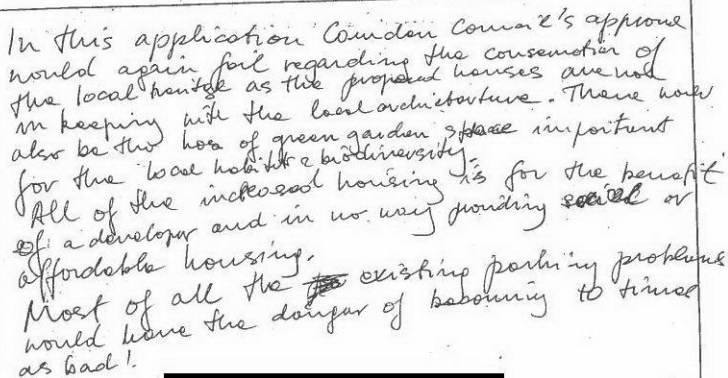 In this application Camden Council's approval
would again fail regarding the conservation of
the local heritage as the proposed houses are not
in keeping with the local architecture. There would
also be the loss of green garden space important
for the local habitat & biodiversity.
All of the increased housing is for the benefit
of a developer and in no way providing social or
affordable housing.
Most of all the existing parking problems
would have the danger of becoming 10 times
as bad!